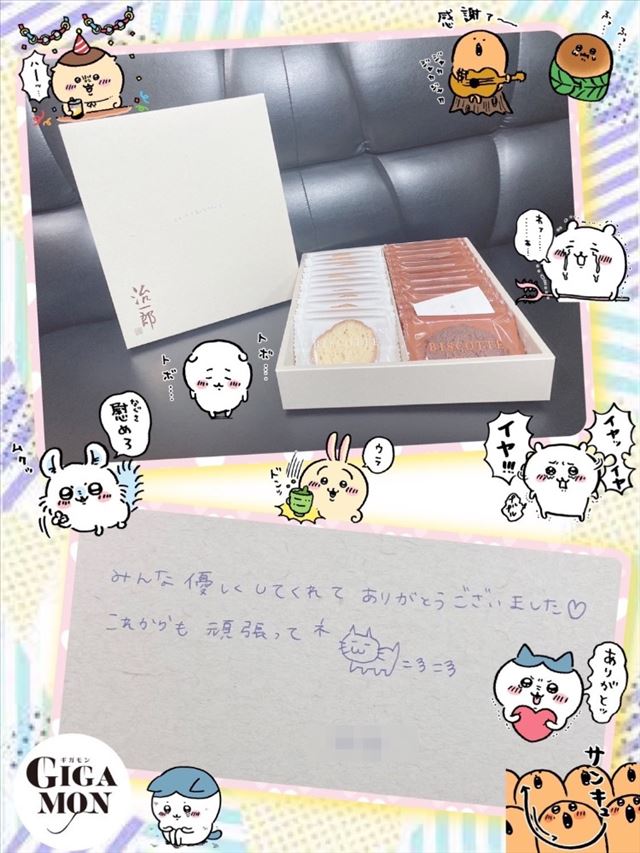 感謝ァ〜
ふっ…
ふっ…
ハーッ
ジャカ
ジャカ
ジャカ
ジャカ
治一郎
BISCOTTE
BISCOTTE
トボ…
トボ…
慰めろ
ムクッ
ウラ
ドンッ
イヤッ
イヤ
イヤ!!!
みんな優しくしてくれてありがとうございました♡
これからも頑張ってネ
=3=3
ありがとッ
サンキュ
ギガモン
GIGA
MON